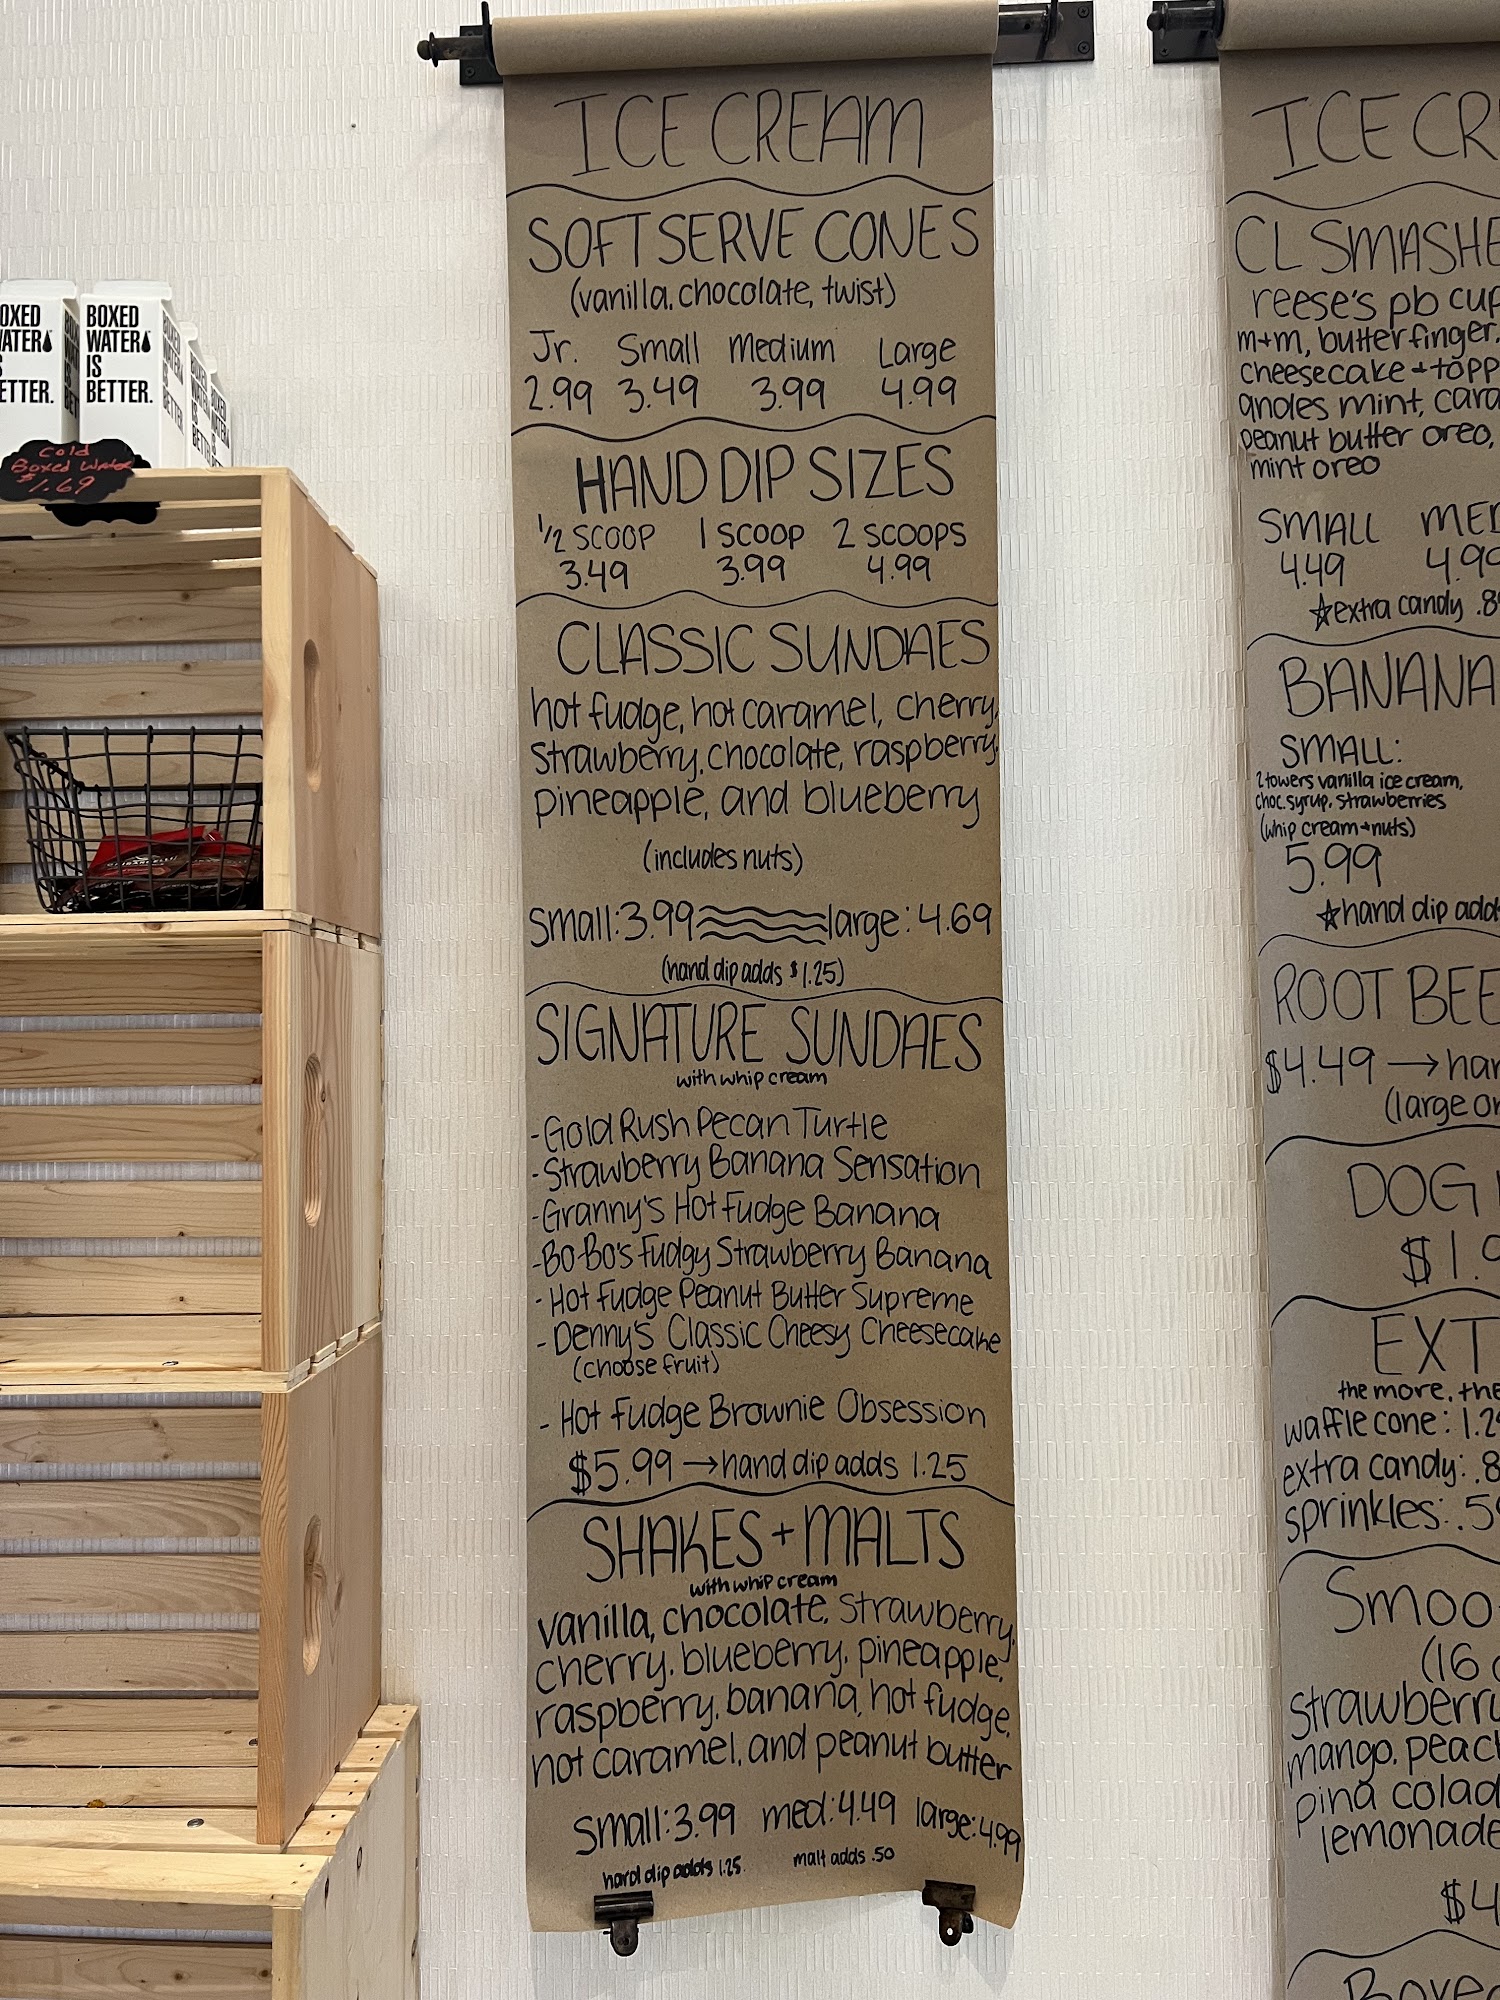 ICE CREAM
SOFT SERVE CONES
(vanilla, chocolate, twist)
Jr. Small Medium Large
2.99 3.49 3.99 4.99
HAND DIP SIZES
1/2 SCOOP 1 SCOOP 2 SCOOPS
3.49 3.99 4.99
CLASSIC SUNDAES
hot fudge, hot caramel, cherry,
strawberry, chocolate, raspberry,
pineapple, and blueberry
(includes nuts)
small: 3.99 large: 4.69
(hand dip adds $1.25)
SIGNATURE SUNDAES
with whip cream
- Gold Rush Pecan Turtle
- Strawberry Banana Sensation
- Granny's Hot Fudge Banana
- Bo-Bo's Fudgy Strawberry Banana
- Hot Fudge Peanut Butter Supreme
- Denny's Classic Cheesy Cheesecake
(choose fruit)
- Hot Fudge Brownie Obsession
$5.99 → hand dip adds 1.25
SHAKES + MALTS
with whip cream
vanilla, chocolate, strawberry,
cherry, blueberry, pineapple,
raspberry, banana, hot fudge,
hot caramel, and peanut butter
Small: 3.99 med: 4.49 large: 4.99
hard dip adds 1.25 malt adds .50
ICE CR
CL SMASHE
reese's pb cup
m+m, butterfinger,
cheesecake + topp
andes mint, cara
peanut butter oreo,
mint oreo
SMALL MED
4.49 4.99
☆extra candy .8
BANANA
SMALL:
2 towers vanilla ice cream,
choc. syrup, strawberries
(whip cream + nuts)
5.99
☆hand dip adds
ROOT BEE
$4.49 → han
(large or
DOG
$1.9
EXT
the more, the
waffle cone: 1.2
extra candy: .8
sprinkles: .5
Smoo
(16 o
strawberry
mango, peach
pina colad
lemonade
$4
Boxed
BOXED
WATER
IS
BETTER.
BOXED
WATER
IS
BETTER.
Cold
Boxed Water
$1.69